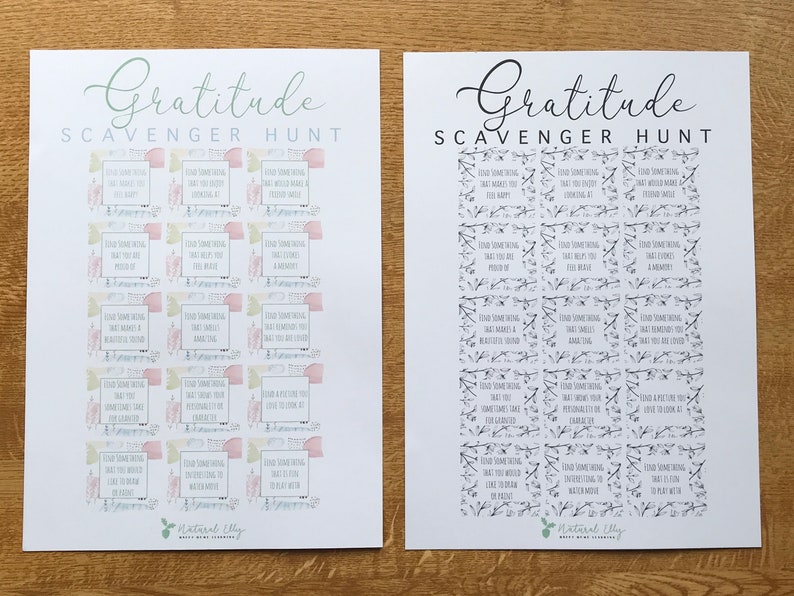 Gratitude
SCAVENGER HUNT
FIND SOMETHING
THAT MAKES YOU
FEEL HAPPY
FIND SOMETHING
THAT YOU ENJOY
LOOKING AT
FIND SOMETHING
THAT WOULD MAKE A
FRIEND SMILE
FIND SOMETHING
THAT YOU ARE
PROUD OF
FIND SOMETHING
THAT HELPS YOU
FEEL BRAVE
FIND SOMETHING
THAT EVOKES
A MEMORY
FIND SOMETHING
THAT MAKES A
BEAUTIFUL SOUND
FIND SOMETHING
THAT SMELLS
AMAZING
FIND SOMETHING
THAT REMINDS YOU
THAT YOU ARE LOVED
FIND SOMETHING
THAT YOU
SOMETIMES TAKE
FOR GRANTED
FIND SOMETHING
THAT SHOWS YOUR
PERSONALITY OR
CHARACTER
FIND A PICTURE YOU
LOVE TO LOOK AT
FIND SOMETHING
THAT YOU WOULD
LIKE TO DRAW
OR PAINT
FIND SOMETHING
INTERESTING TO
WATCH MOVE
FIND SOMETHING
THAT IS FUN
TO PLAY WITH
Natural Elly
HAPPY HOME LEARNING
Gratitude
SCAVENGER HUNT
FIND SOMETHING
THAT MAKES YOU
FEEL HAPPY
FIND SOMETHING
THAT YOU ENJOY
LOOKING AT
FIND SOMETHING
THAT WOULD MAKE A
FRIEND SMILE
FIND SOMETHING
THAT YOU ARE
PROUD OF
FIND SOMETHING
THAT HELPS YOU
FEEL BRAVE
FIND SOMETHING
THAT EVOKES
A MEMORY
FIND SOMETHING
THAT MAKES A
BEAUTIFUL SOUND
FIND SOMETHING
THAT SMELLS
AMAZING
FIND SOMETHING
THAT REMINDS YOU
THAT YOU ARE LOVED
FIND SOMETHING
THAT YOU
SOMETIMES TAKE
FOR GRANTED
FIND SOMETHING
THAT SHOWS YOUR
PERSONALITY OR
CHARACTER
FIND A PICTURE YOU
LOVE TO LOOK AT
FIND SOMETHING
THAT YOU WOULD
LIKE TO DRAW
OR PAINT
FIND SOMETHING
INTERESTING TO
WATCH MOVE
FIND SOMETHING
THAT IS FUN
TO PLAY WITH
Natural Elly
HAPPY HOME LEARNING